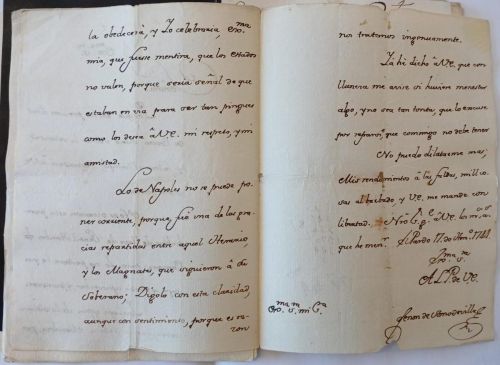 la obedeceria, y Yo celebraria, Ex.ma
mia, que fuesse mentira, que los Estados
no valen, porque seria señal de que
estaban en via para ser tan pingues
como los desea a V.E. mi respeto, y mi
amistad.
Lo de Napoles no se puede po-
ner corriente, porque fue una de las gra-
cias repartidas entre aquel Herario
y los Magnates, que siguieron à su
Soberano; Digolo con esta claridad,
aunque con sentimiento, porque es ra-
zon
nos tratemos ingenuamente.
Ya hè dicho à V.E. que con
llaneza me avise si huviere menester
algo, y no sea tan tonta, que lo escuse
por reparos, que conmigo no debe tener
No puedo dilatarme mas;
Mis rendimientos à las faldas, millio-
nes al barbado, y V.E. me mande con
libertad. Nro S.r g.e à V.E. los m.s a.s
que he men.r El Pardo 17. de 1744
Ex.ma S.ra
A L. P. de V.E.
Zenon de Somodevilla
Ex.ma S.ra mi S.ra